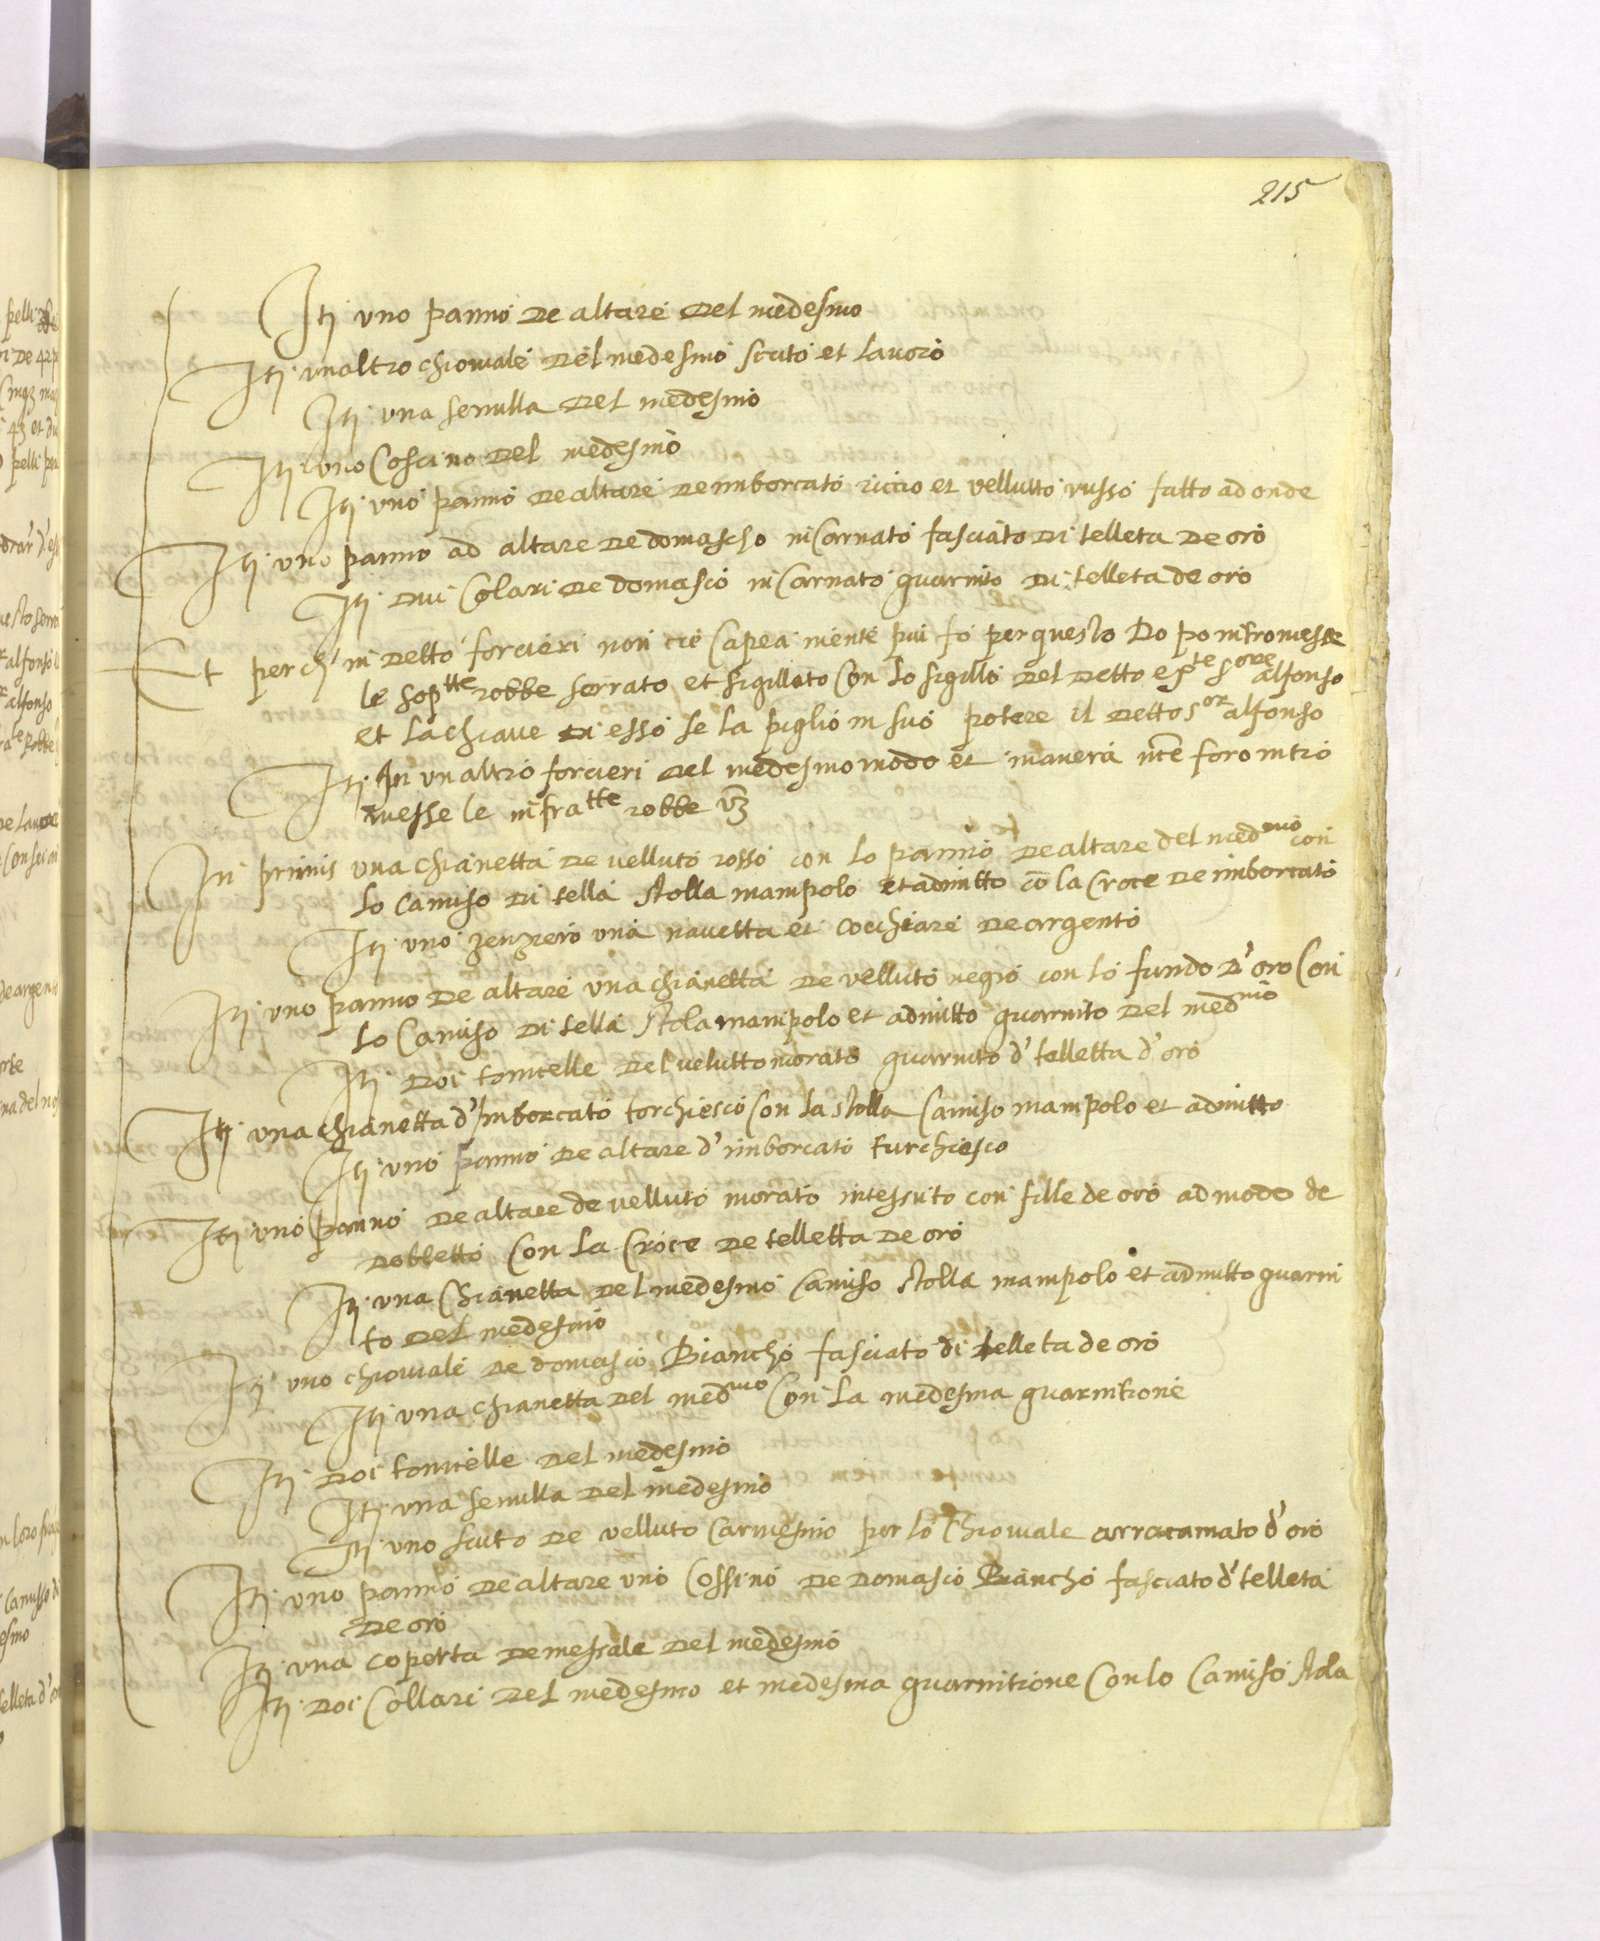 215
Itj uno panno de altare del medesmo
Itj unaltro chiovale del medesmo scuto et lavoro
Itj una senulla del medesmo
Itj uno Coscino del medesmo
Itj uno panno de altare de imborcato riccio et velluto russo fatto ad onde
Itj uno panno ad altare de domascho incarnato fasciato di telleta de oro
Itj dui Colari de domasco incarnato guarnito di telleta de oro
Et perch' in detto forcieri non cie capea niente piu fo per questo Do po introme
le sop.tte robbe serrato et sigillato con lo sigillo del detto s.ore alfonso
et la chiave di esso se la piglio in suo potere il detto s.or alfonso
Itj In un altro forcieri del medesmo modo et manera nce foro intro
messe le infra.tte robbe vz
In primis una chianetta de velluto rosso con lo panno de altare del med.mo con
lo camiso di tella stolla mampolo et admitto co la croce de imborcato
Itj uno zenziero una navetta et cocchiare de argento
Itj uno panno de altare una chianetta de velluto negro con lo fundo d'oro con
lo Camiso di tella stola mampolo et admitto guarnito del med.mo
Itj doi tonicelle del veluttto morato guarnito d' telletta d'oro
Itj una chianetta d'imborcato torchiesco con la stolla Camiso mampolo et admitto
Itj uno panno de altare d'imborcato turchesco
Itj uno panno de altare de velluto morato intessuto con fille de oro ad modo de
dobletto con la croce de telletta de oro
Itj una Chianetta del medesmo camiso stolla mampolo et admitto guarni
to del medesmo
Itj uno chiovale de domasco Biancho fasciato di telleta de oro
Itj una chianetta del med.mo con la medesma guarnitione
Itj doi tonicelle del medesmo
Itj una senulla del medesmo
Itj uno scuto de velluto carmesino per lo Chiovale arracamato d'oro
Itj uno panno de altare uno cossino de domasco Biancho fasciato d' telleta
de oro
Itj una coperta de messale del medesmo
Itj doi Collari del medesmo et medesma guarnitione Con lo Camiso stola